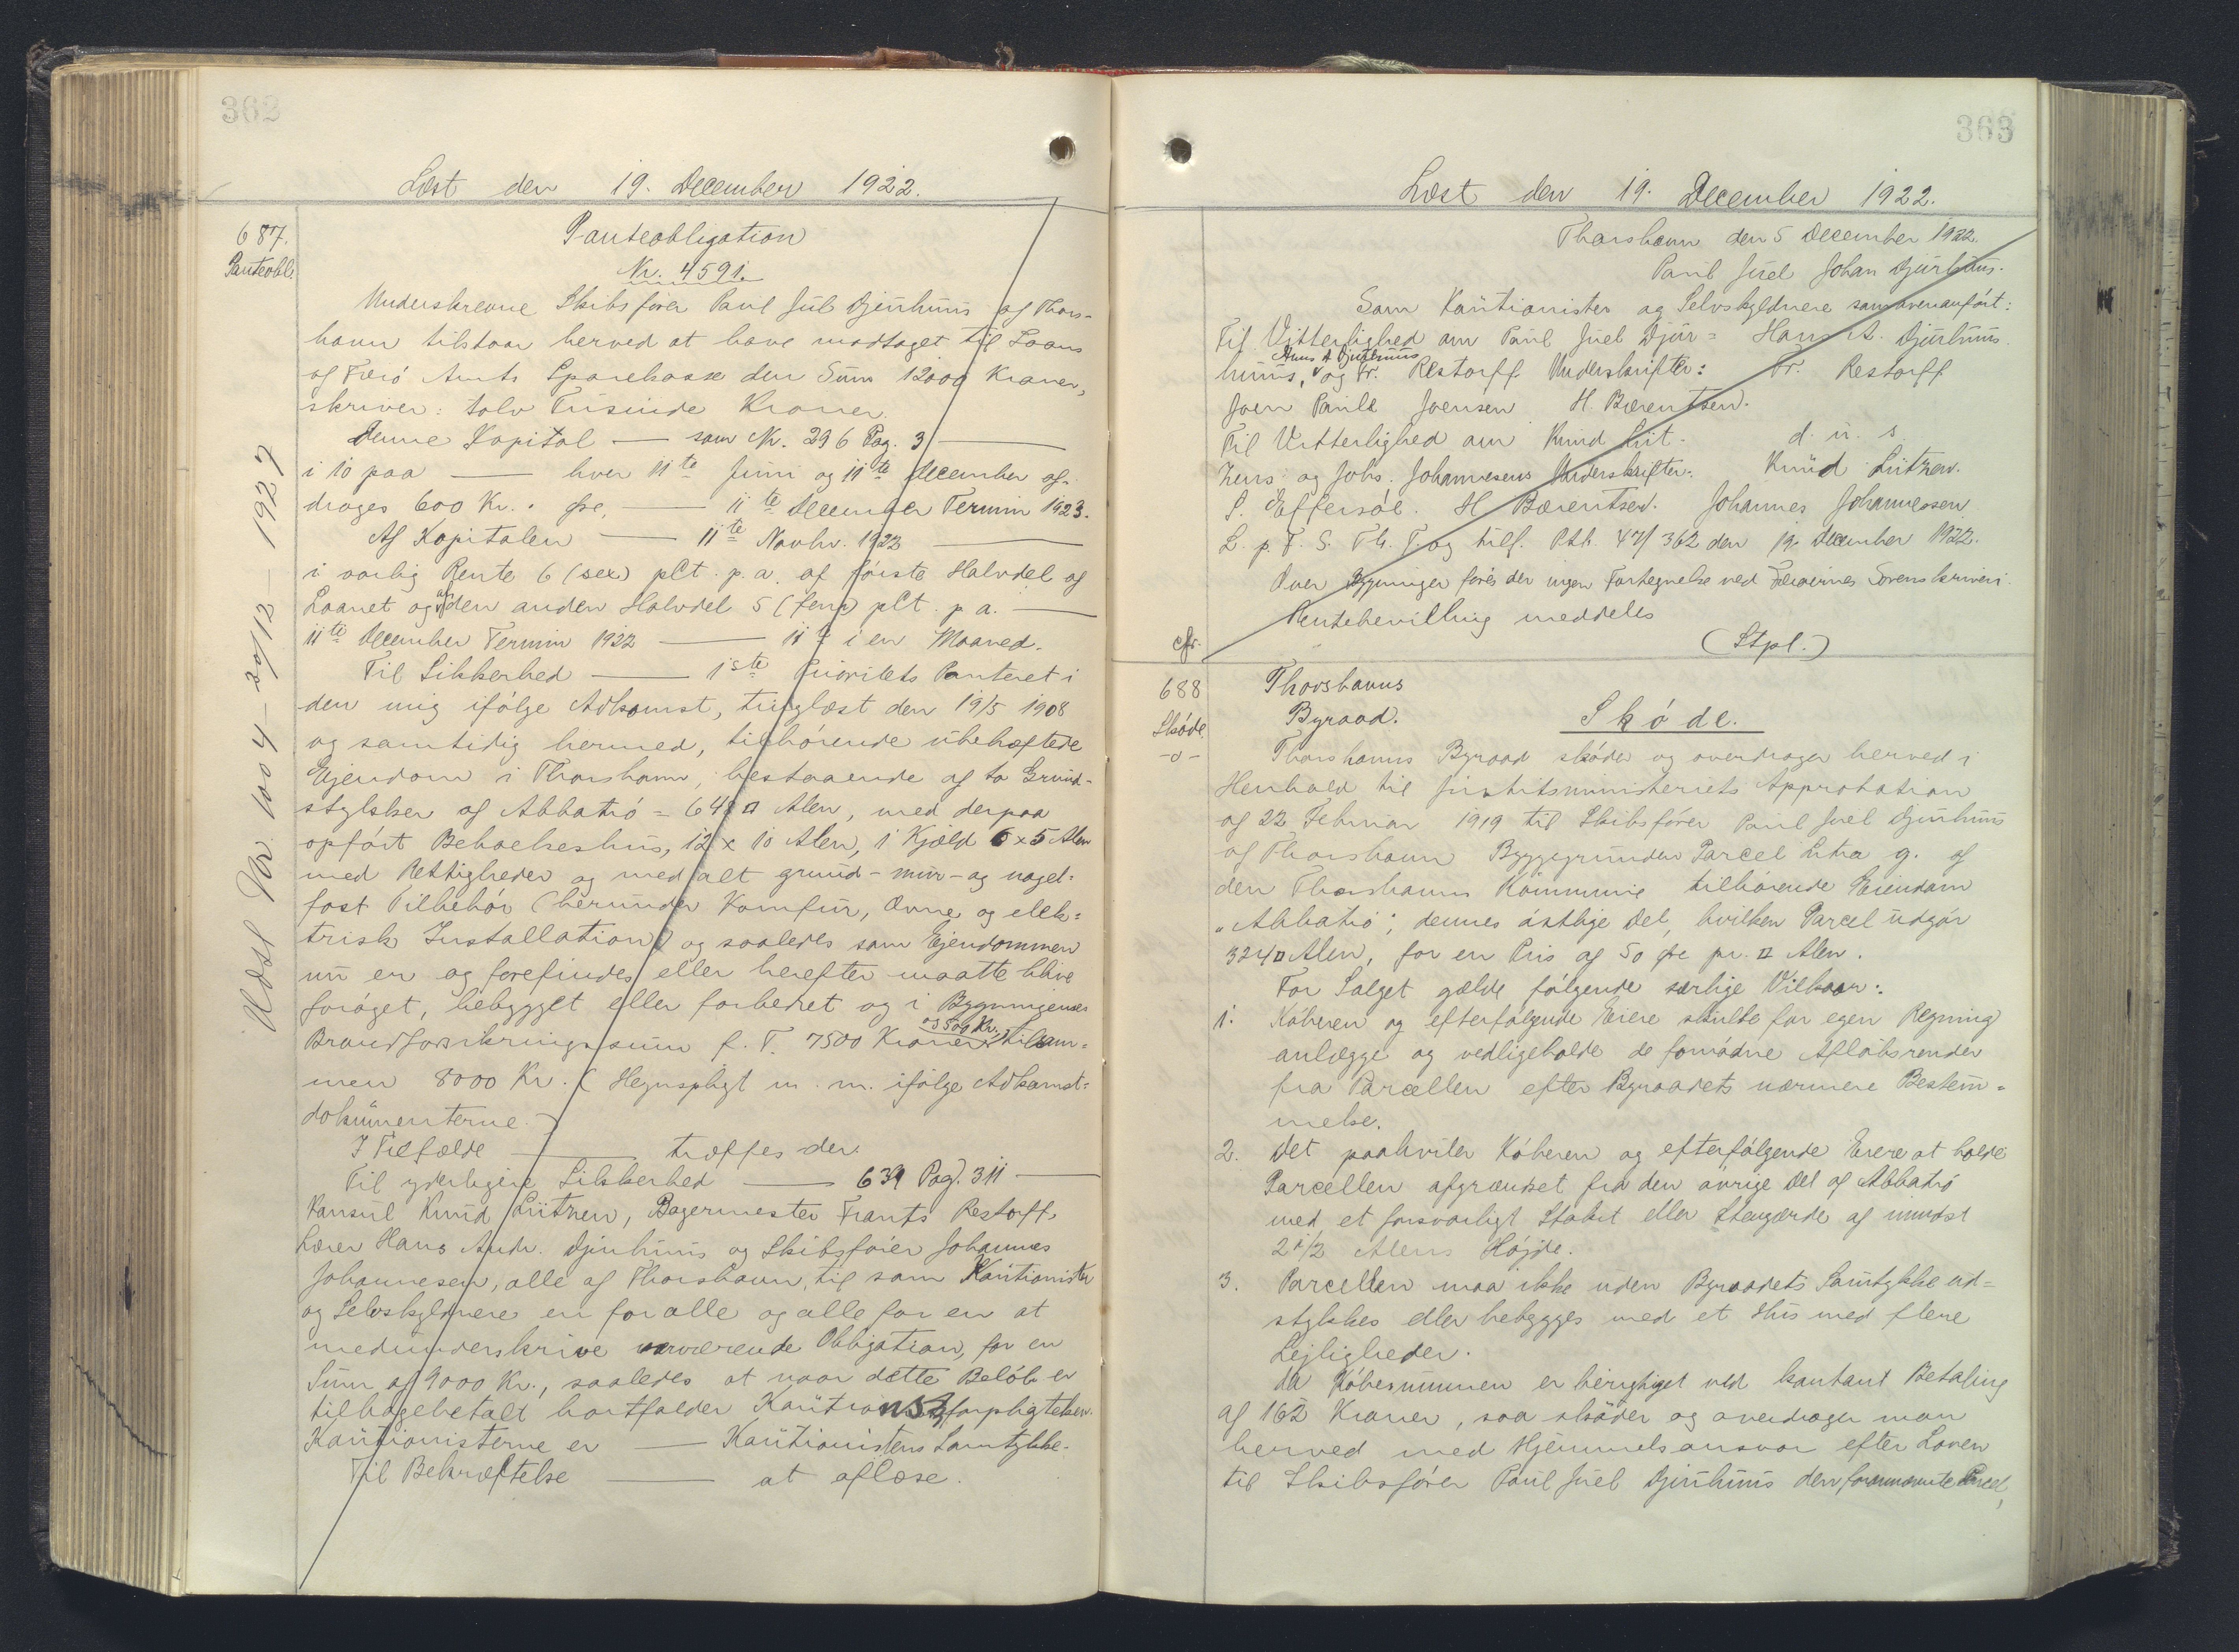 362
Læst den 19. December 1922.
687.
Panteobl.
Panteobligation
Nr. 4591.
Underskrevne Skibsfører Paul Juel Djurhuus af Thors-
havn tilstaar herved at have modtaget til Laans
af Færø Amts Sparekasse den Sum 12000 Kroner,
skriver: tolv Tusinde Kroner.
Denne Kapital — som Nr. 296 Pag. 3 —
i 10 paa — hver 11te Juni og 11te December af-
drages 600 Kr. . Øre, — 11te December Termin 1923.
Af Kapitalen — 11te Novbr. 1922 —
i aarlig Rente 6 (sex) pCt. p. a. af første Halvdel af
Laanet og af den anden Halvdel 5 (fem) pCt. p. a. —
11te December Termin 1922 — 11te i en Maaned.
Til Sikkerhed — 1ste Prioritets Panteret i
den mig ifølge Adkomst, tinglæst den 19/5 1908
og samtidig hermed, tilhørende ubehæftede
Ejendom i Thorshavn, bestaaende af to Grund-
stykker af Abbatrø = 648 □ Alen, med derpaa
opført Beboelseshus, 12 x 10 Alen, 1 Kjæld 6 x 5 Alen
med Rettigheder og med alt grund- mur- og nagel-
fast Tilbehør (herunder Komfur, Ovne og elek-
trisk Installation) og saaledes som Ejendommen
nu er og forefindes eller herefter maatte blive
forøget, bebygget eller forbedret og i Bygningernes
Brandforsikringssum f. T. 7500 Kroner og 500 Kr., tilsam-
men 8000 Kr. (Hegnspligt m. m. ifølge Adkomst-
dokumenterne.)
I Tilfælde — træffes der.
Til yderligere Sikkerhed — 639 Pag. 311 —
Konsul Knud Lützen, Bagermester Frants Restorff,
Lærer Hans Andr. Djurhuus og Skibsfører Johannes
Johannesen, alle af Thorshavn, til som Kautionister
og Selvskyldnere en for alle og alle for en at
medunderskrive nærværende Obligation, for en
Sum af 9000 Kr., saaledes at naar dette Beløb er
tilbagebetalt bortfalder Kautionsforpligtelsen.
Kautionisterne er — Kautionistens Samtykke.
Til Bekræftelse — at aflæse.
Udsl Nr. 1004 - 29/12 - 1927
363
Læst den 19. December 1922.
Thorshavn den 5 December 1922.
Paul Juel Johan Djurhuus.
Som Kautionister og Selvskyldnere som ovenanført:
Til Vitterlighed om Paul Juel Djur- Hans A. Djurhuus.
huus, Hans A Djurhuus og Fr. Restorff Underskrifter: Fr. Restorff
Joen Paule Joensen H. Bærentsen.
Til Vitterlighed om Knud Lüt- d. u. s.
zens og Johs. Johannesens Underskrifter: Knud Lützen.
S. Effersøe. H Bærentsen. Johannes Johannesen
L. p. F. S. Th. T. og tilf. Ptb. 47/362 den 19. December 1922.
Over Bygninger føres der ingen Fortegnelse ved Færøernes Sorenskriveri.
Rentebevilling meddeles
(Stpl.)
cfr.
688
Skøde
-o-
Thorshavns
Byraad.
Skøde.
Thorshavns Byraad skøder og overdrager herved i
Henhold til Justitsministeriets Approbation
af 22 Februar 1919 til Skibsfører Paul Juel Djurhuus
af Thorshavn Byggegrunden Parcel Litra g. af
den Thorshavns Kommune tilhørende Eiendom
„Abbatrø“, dennes østlige Del, hvilken Parcel udgør
324 □ Alen, for en Pris af 50 Øre pr. □ Alen.
For Salget gælde følgende særlige Vilkaar:
1. Køberen og efterfølgende Eiere skulle for egen Regning
anlægge og vedligeholde de fornødne Afløbsrender
fra Parcellen efter Byraadets nærmere Bestem-
melse.
2. Det paahviler Køberen og efterfølgende Eiere at holde
Parcellen afgrændset fra den øvrige Del af Abbatrø
med et forsvarligt Stakit eller Stengærde af mindst
2 1/2 Alens Højde.
3. Parcellen maa ikke uden Byraadets Samtykke ud-
stykkes eller bebygges med et Hus med flere
Lejligheder.
Da Købesummen er berigtiget ved kontant Betaling
af 162 Kroner, saa skøder og overdrager man
herved med Hjemmelsansvar efter Loven
til Skibsfører Paul Juel Djurhuus den fornævnte Parcel,